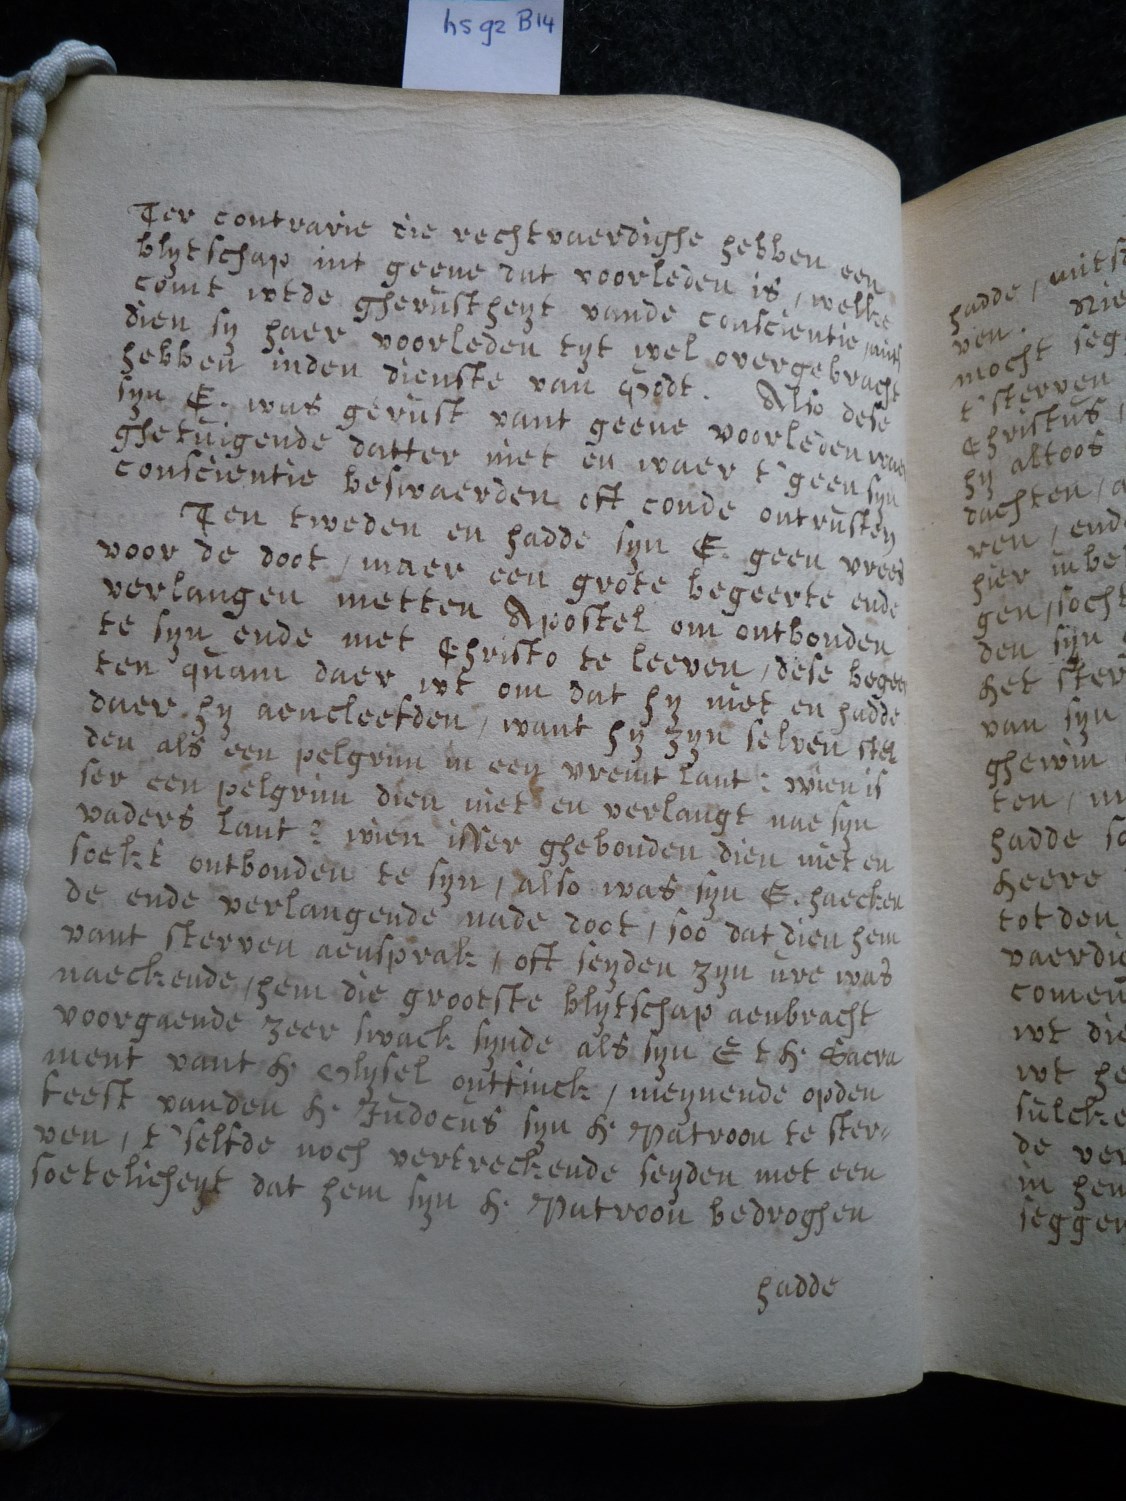 hs gz B14
Ter contrarie die rechtvaerdighe hebben een
blytschap int geene dat voorleden is, welke
comt wtde gherustheyt vande conscientie, mits
dien sy haer voorleden tyt wel overgebracht
hebben inden dienste van Godt. Also dese
syn E. was gerust vant geene voorleden was
ghetuigende datter niet en waer t'geen syn
conscientie beswaerden oft conde ontrusten
Ten tweden en hadde syn E. geen vrees
voor de doot, maer een grote begeerte ende
verlangen metten Apostel om ontbonden
te syn ende met Christo te leeven, dese begeer
ten quam daer wt om dat hy niet en hadde
daer hy aencleefden, want hy zyn selven stel
den als een pelgrim in een vremt lant: wien is
ser een pelgrim dien niet en verlangt nae syn
vaders lant? wien isser ghebonden dien niet en
soekt ontbonden te syn, also was syn E. haecken
de ende verlangende nade doot, soo dat dien hem
vant sterven aensprak, oft seyden zyn ure was
naeckende, hem die grootste blytschap aenbracht
voorgaende zeer swack synde als syn E t H. Sacra
ment vant H. Olysel ontfinck, meynende opden
feest vanden H. Judocus syn H. Patroon te ster=
ven, t'selfde noch vertreckende seyden met een
soetelicheyt dat hem syn H. Patroon bedroghen
hadde
hadde, mits
ven. Nie
mocht seg
t'sterven
Christus,
hy altoos
dachten, a
ren, ende
hier in be
gen, soch
den syn
het ster
van syn
ghewin
ten, m
hadde so
heere
tot den
vaerdi
comen
wt die
wt he
sulcke
de ver
in hem
seggen